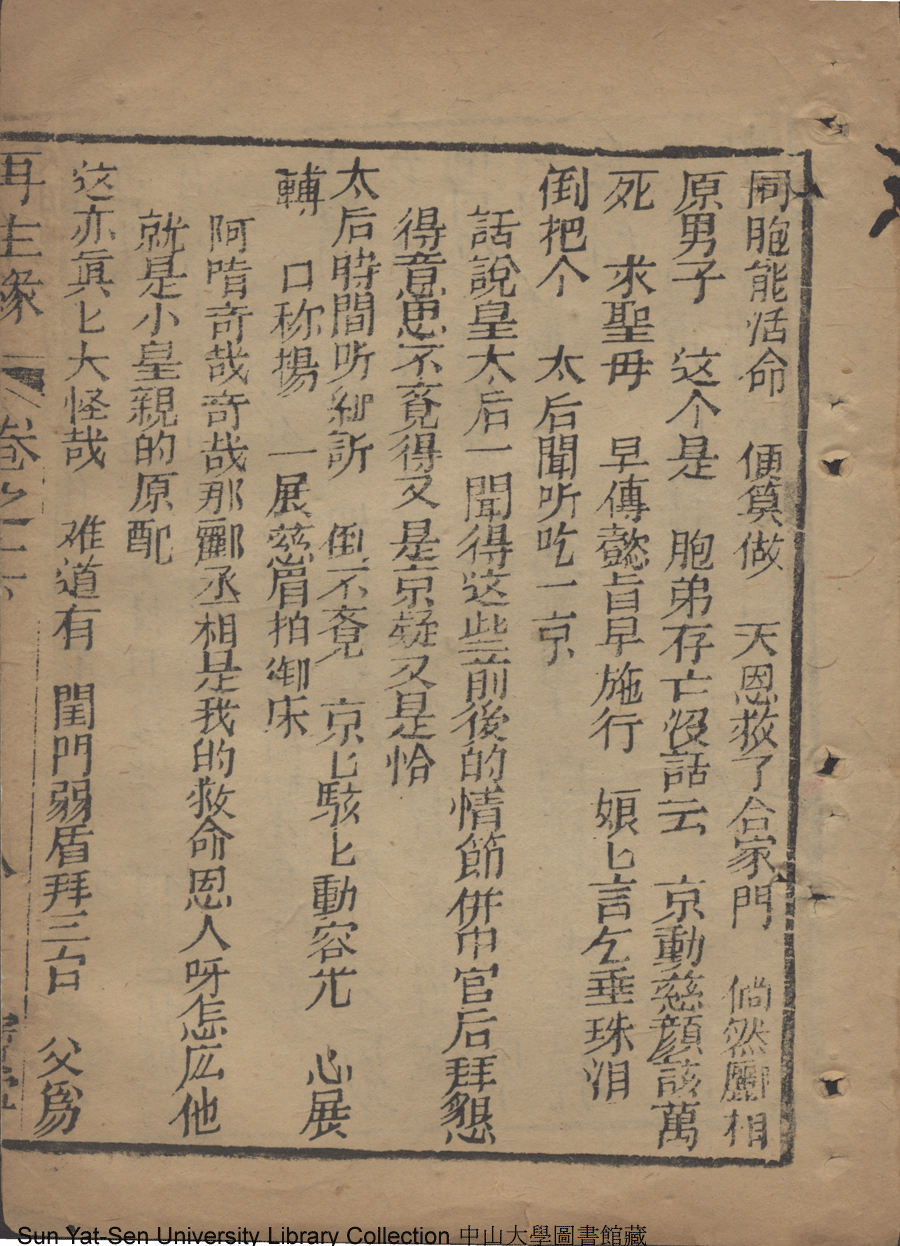 同胞能活命　便算做　天恩救了合家門　倘然酈相
原男子　这个是　胞弟存亡沒話云　京動慈顏該萬
死　求聖母　早傳懿旨早施行　娘匕言乞垂珠泪
倒把个　太后聞听吃一京
話說皇太后一聞得这些前後的情節併中宮后拜懇
得意思不覔得又是京疑又是恰
太后時間听細訴　倒不覔　京匕駭匕動容光　心展
轉　口称揚　一展慈眉拍御床
阿唷奇哉奇哉那酈丞相是我的救命恩人呀怎庅他
就是小皇親的原配
这亦眞匕大怪哉　难道有　閨門弱盾拜三台　父爲
再生緣　卷之十六
Sun Yat-Sen University Library Collection 中山大學圖書館藏